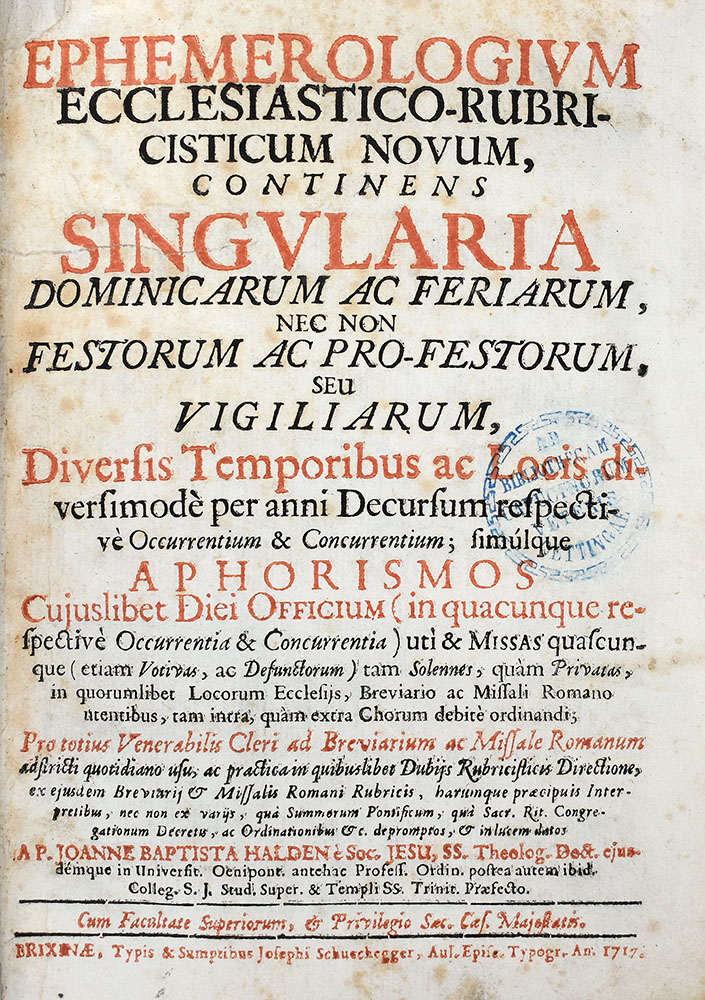 EPHEMEROLOGIVM
ECCLESIASTICO-RUBRI-
CISTICUM NOVUM,
CONTINENS
SINGVLARIA
DOMINICARUM AC FERIARUM,
NEC NON
FESTORUM AC PRO-FESTORUM,
SEU
VIGILIARUM,
Diversis Temporibus ac Locis di-
versimodè per anni Decursum respecti-
vè Occurrentium & Concurrentium; simúlque
APHORISMOS
Cujuslibet Diei OFFICIUM (in quacunque re-
spectivè Occurrentia & Concurrentia) utì & MISSAS quascun-
que (etiam Votivas, ac Defunctorum) tam Solennes, quàm Privatas,
in quorumlibet Locorum Ecclesijs, Breviario ac Missali Romano
utentibus, tam intra, quàm extra Chorum debitè ordinandi;
Pro totius Venerabilis Cleri ad Breviarium ac Missale Romanum
adstricti quotidiano usu, ac practica in quibuslibet Dubijs Rubricisticis Directione,
ex ejusdem Breviarij & Missalis Romani Rubricis, harumque præcipuis Inter-
pretibus, nec non ex varijs, quà Summorum Pontificum, quà Sacr. Rit. Congre-
gationum Decretis, ac Ordinationibus &c. depromptos, & in lucem datos
A P. JOANNE BAPTISTA HALDEN è Soc. JESU, SS. Theolog. Doct. ejus-
démque in Universit. Oenipont. antehac Profess. Ordin. postea autem ibid.
Colleg. S. J. Stud. Super. & Templi SS. Trinit. Præfecto.
Cum Facultate Superiorum, & Privilegio Sac. Cæs. Majestatis.
BRIXINÆ, Typis & Sumptibus Josephi Schuechegger, Aul. Episc. Typogr. An. 1717.
AD
BIBLIOTHECAM